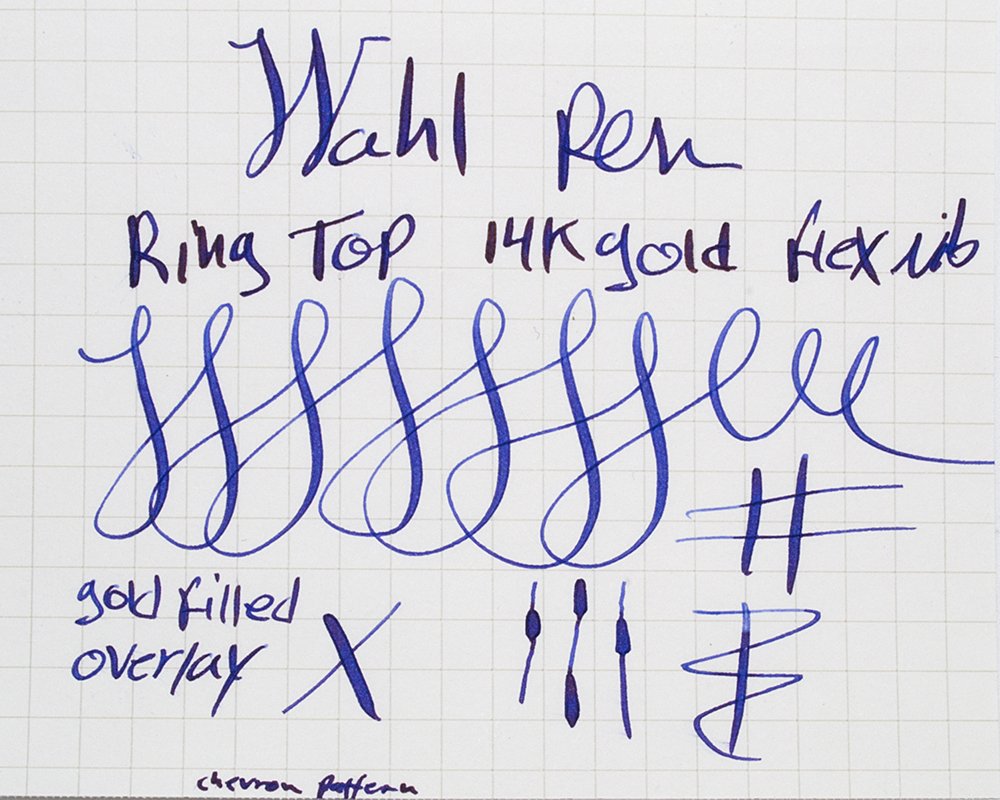 Wahl Pen
Ring Top 14K gold flex nib
gold filled
overlay
chevron pattern